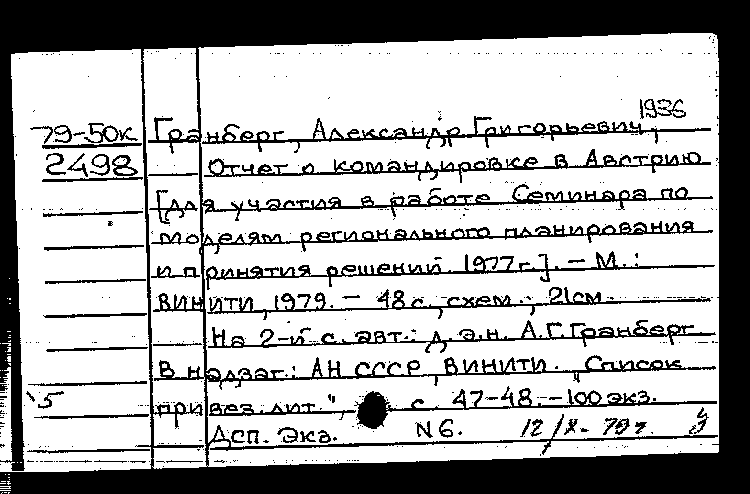 1936
79-50к Гранберг, Александр Григорьевич,
2498 Отчет о командировке в Австрию
[для участия в работе Семинара по
моделям регионального планирования
и принятия решений 1977г.]. – М.:
ВИНИТИ, 1979. – 48 с., схем.; 21см.
На 2-й с. авт.: д.э.н. А.Г. Гранберг
В надзаг.: АН СССР, ВИНИТИ. „Список
5 привез. лит.", с. 47-48. – 100 экз.
Дсп. Экз. N6. 12/X-79г.